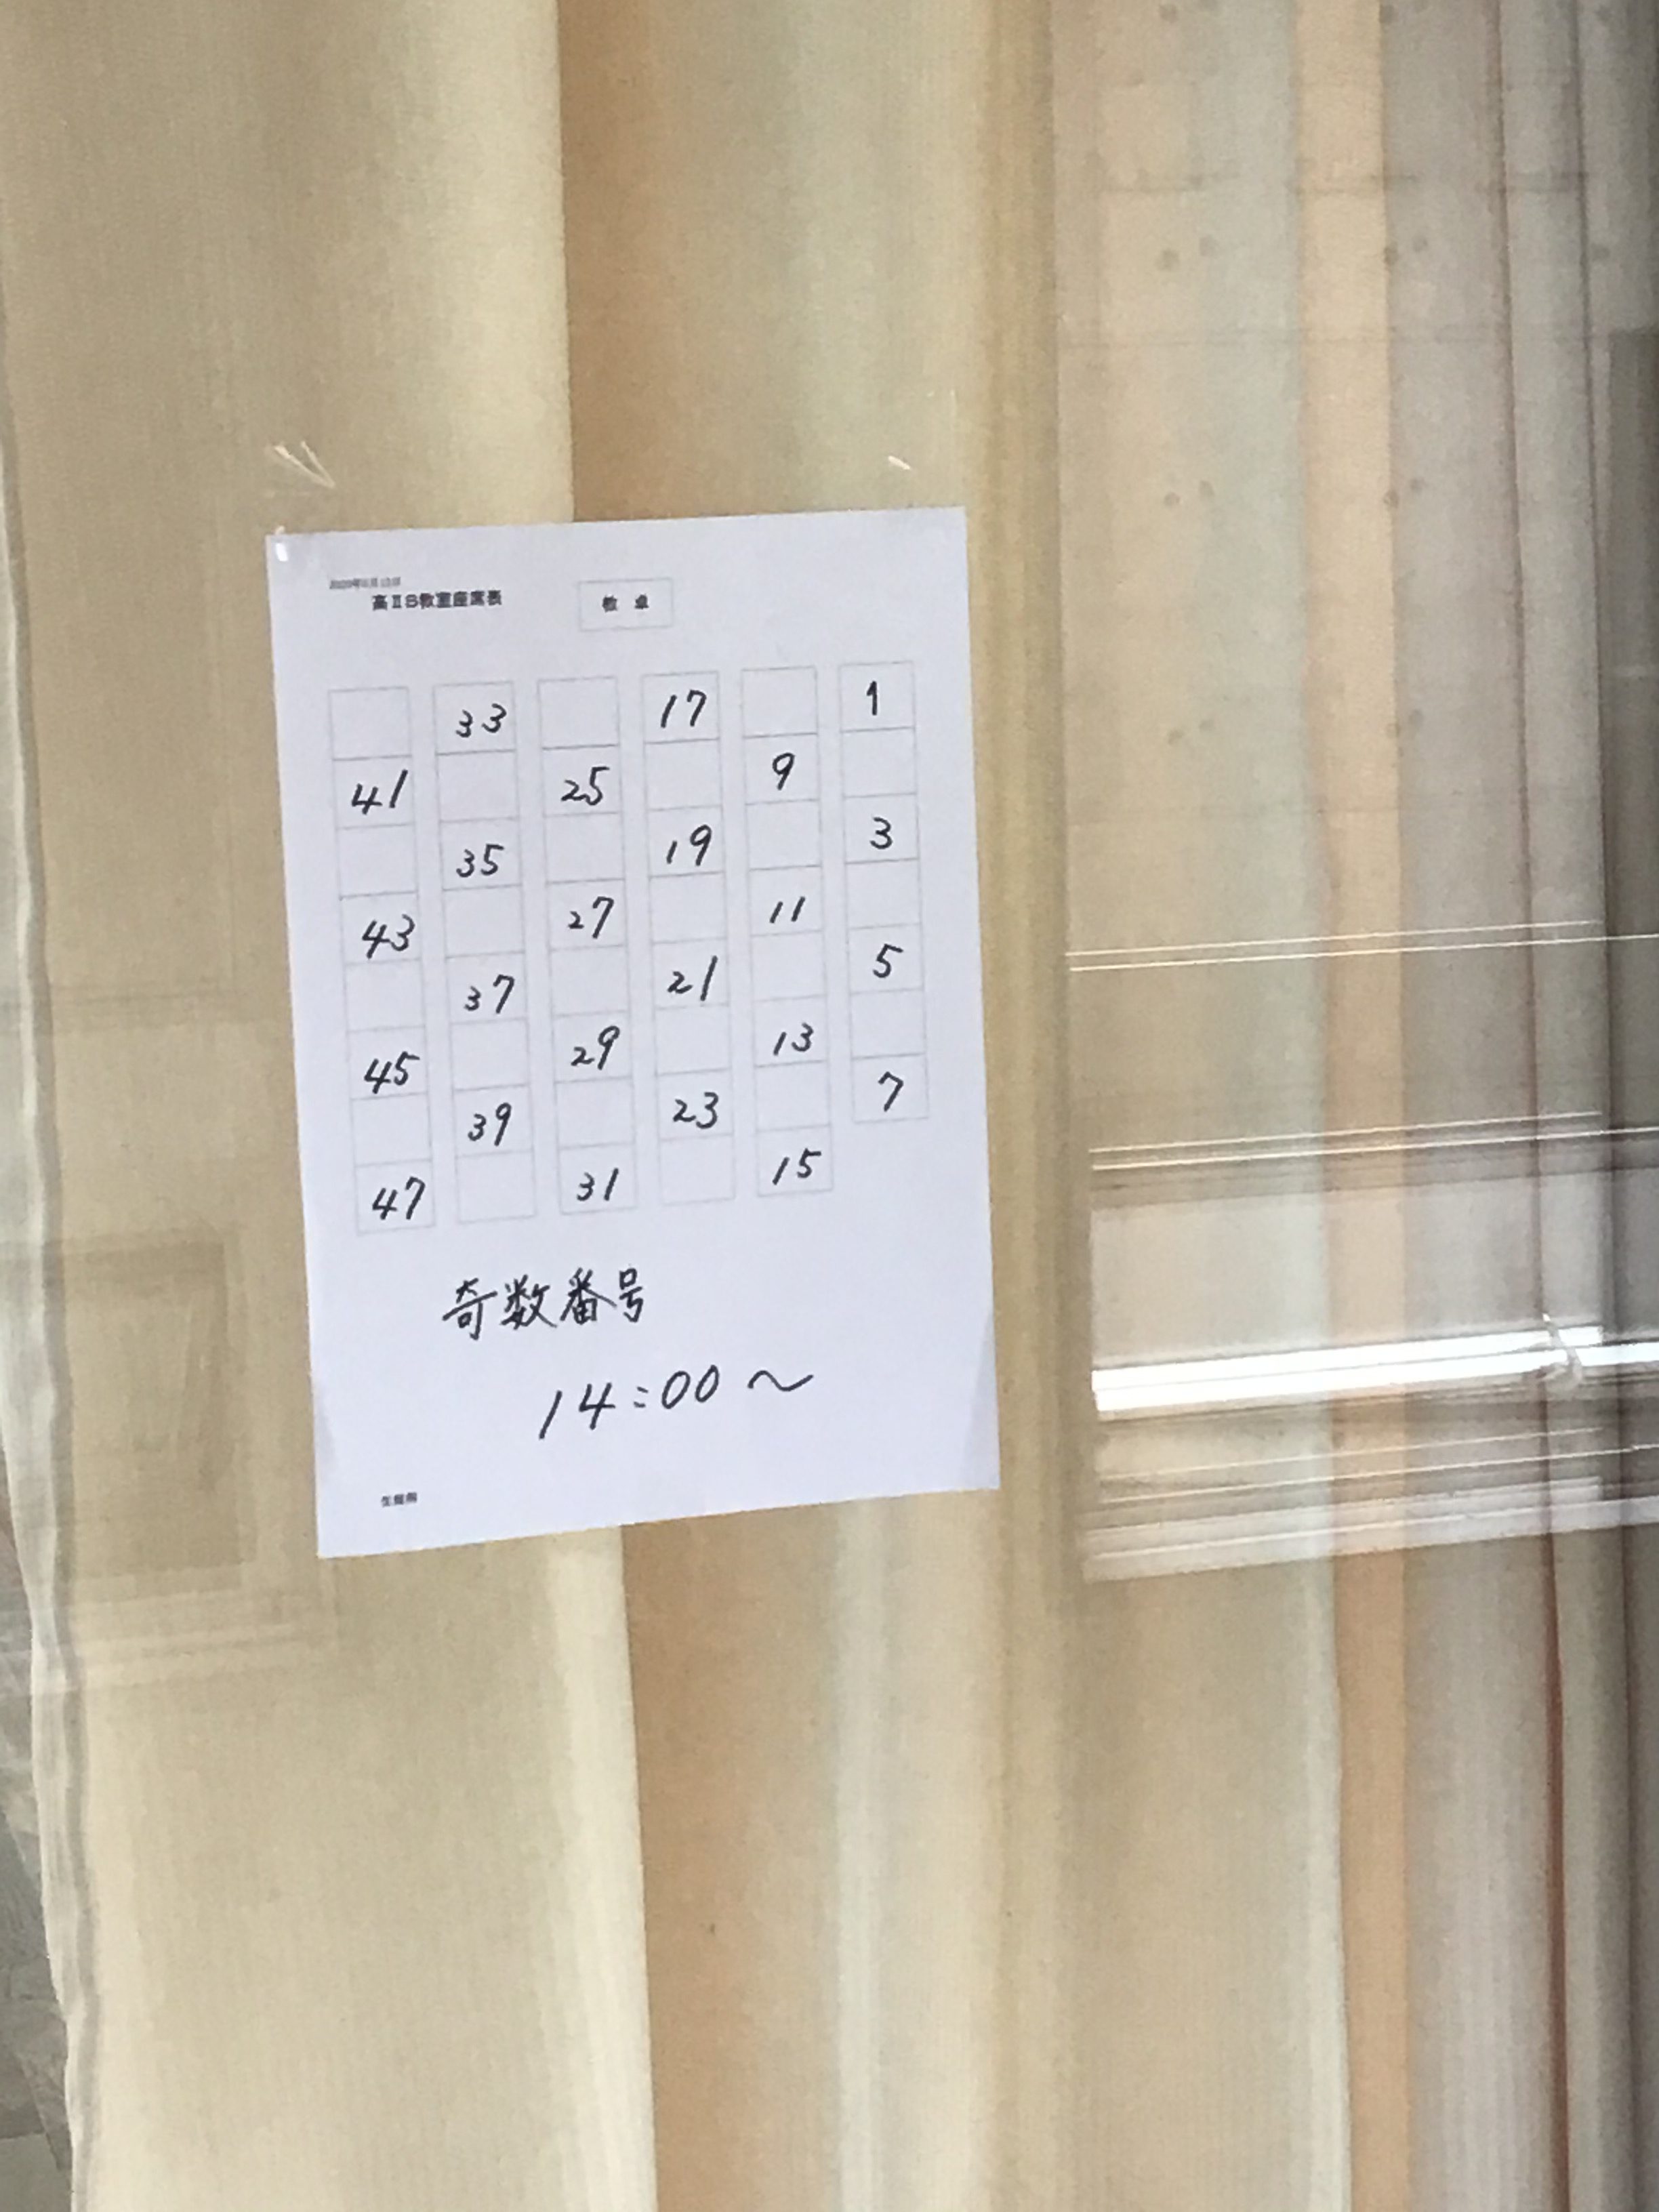 高ⅡS教室座席表
教 卓
33 17 1
41 25 9
35 19 3
43 27 11
37 21 5
45 29 13
39 23 7
47 31 15
奇数番号
14:00〜